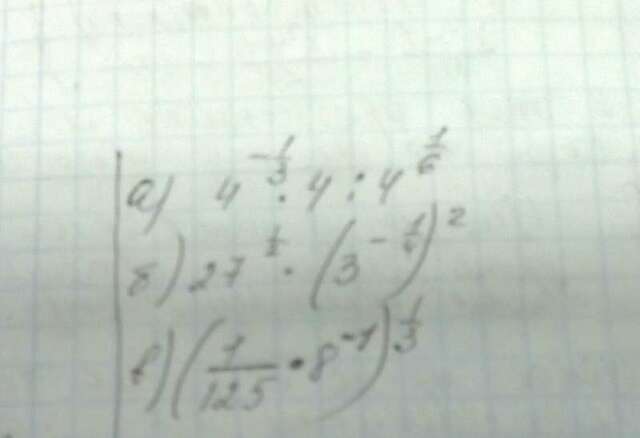 а) 4^{-1/3} · 4 : 4^{1/6}
б) 27^{1/2} · (3^{-1/4})^2
в) (1/125 · 8^{-1})^{1/3}